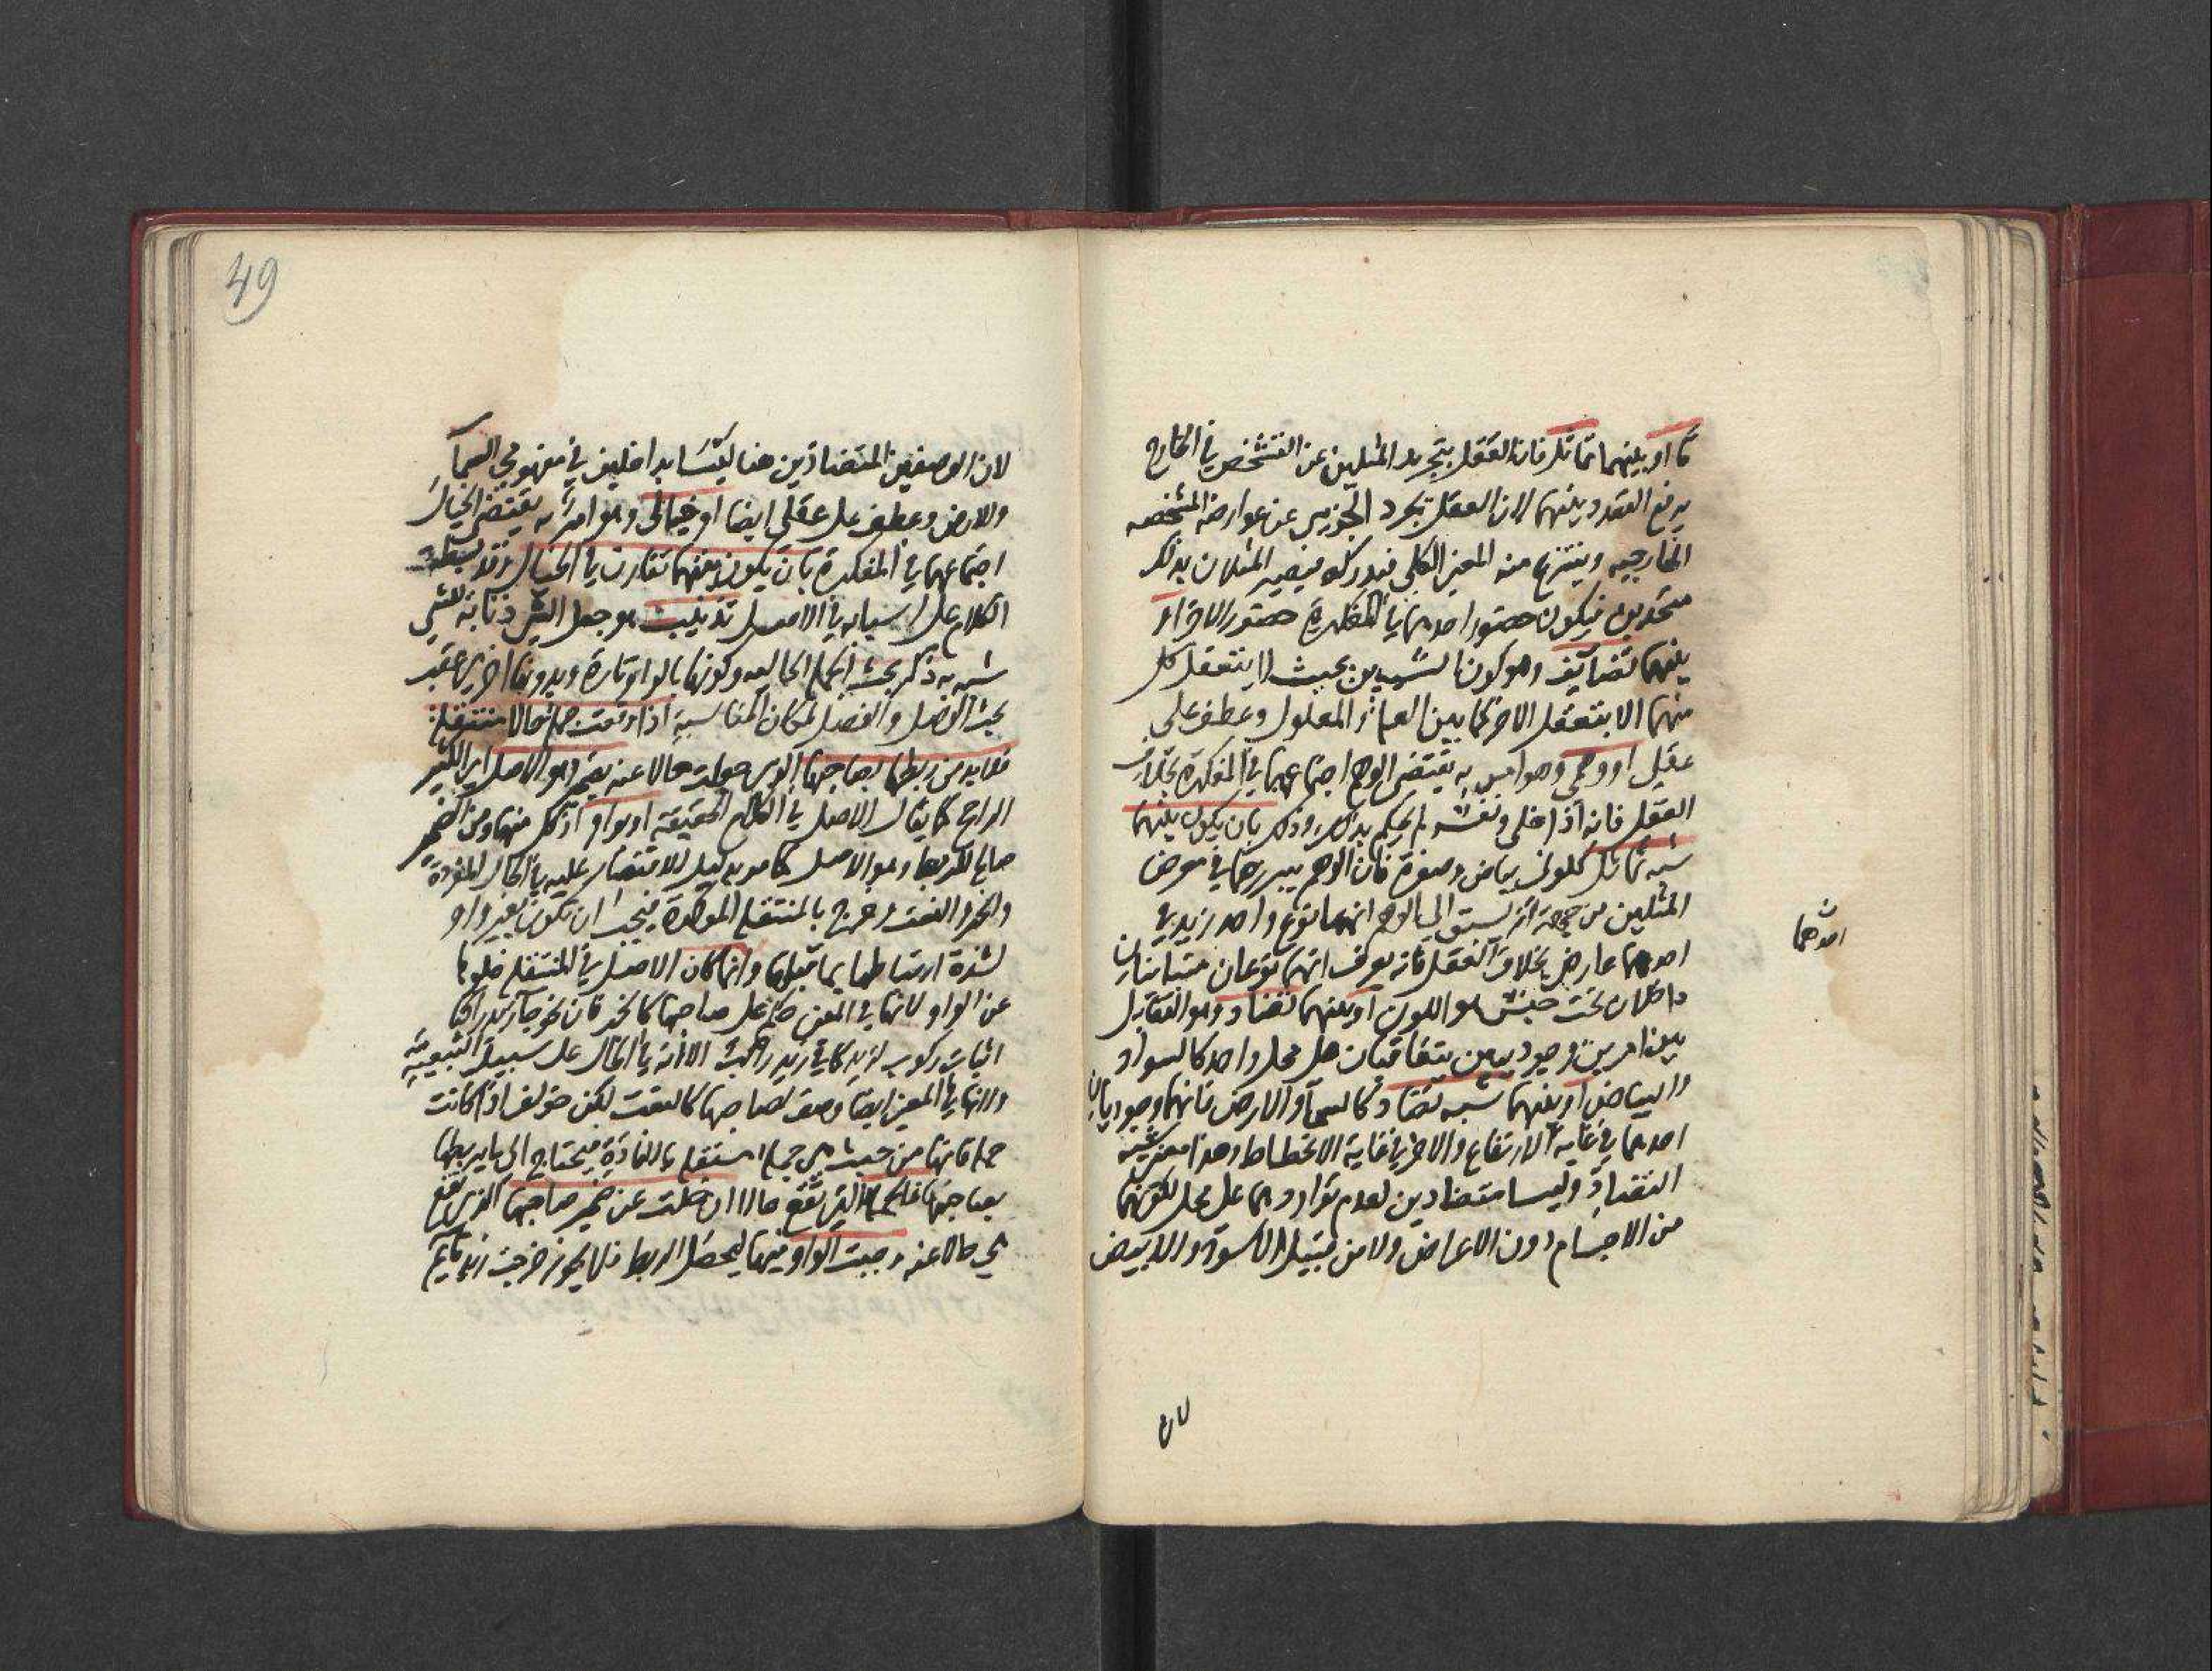 ما او بينهما تماثل فان العقل بتجريد المثلين عن التشخص في الخارج
يرفع التعدد بينهما لان العقل يجرد الجزئى عن عوارضه المشخصه
الخارجيه وينتزع منه المعنى الكلي فيدركه فيصير المثلان بذلك
متحدين فيكون حضور احدهما في المفكرة حضور الاخر او
بينهما تضايف وهو كون الشيئين بحيث لا يتعقل كل
منهما الا بتعقل الاخر كما بين العلة والمعلول وعطف على
عقلي او وهمي وهو امر به يقتضى الوهم اجتماعهما في المفكرة بخلاف
العقل فانه اذا خلى ونفسه لم يحكم بذلك وذلك بان يكون بينهما
شبه تماثل كلونى بياض وصفرة فان الوهم يبرزهما في معرض
المثلين من جهة انه يسبق الى الوهم انهما نوع واحد زيد في
احدهما عارض بخلاف العقل فانه يعرف انهما نوعان متباينان
داخلان تحت جنس هو اللون او بينهما تضاد وهو التقابل
بين امرين وجوديين يتعاقبان على محل واحد كالسواد
والبياض او بينهما شبه تضاد كالسمآ والارض فانهما وجوديان
احدهما في غاية الارتفاع والاخر في غاية الانحطاط وهذا معنى شبه
التضاد وليسا متضادين لعدم تواردهما على محل لكونهما
من الاجسام دون الاعراض ولا من قبيل الاسود والابيض
احدهما
لان
49
لان الوصفين المتضادين هنا ليسَا بداخلين في مفهومي السمآ
والارض وعطف على عقلي ايضا او خيالى وهو امر به يقتضى الخيال
اجتماعهما في المفكرة بان يكون بينهما تقارن في الخيال وقد بسطت
الكلام على اسبابه في الاصل تذنيب هو جعل الشئ ذنابة للشئ
شبه به ذكر بحث الجملة الحاليه وكونها بالواو تارة وبدونها اخرى عقب
بحث الوصل والفصل لمكان المناسبة اذا وقعت جملة حالا منتقلة
فلابد من ربطها بصاحبها الذى جعلت حالا عنه بضمير وهو الاصل اى الكثير
الراجح كما يقال الاصل في الكلام الحقيقة او بواو اذ كل منهما ومن الضمير
صالح للربط وهو الاصل كما مر بدليل الاقتصار عليه في الحال المفردة
والخبر والنعت وخرج بالمنتقلة الموكدة فيجب ان تكون بغير واو
لشدة ارتباطها بما قبلها وانما كان الاصل في المنتقلة خلوها
عن الواو لانها في المعنى حكم على صاحبها كالخبر فان نحو جآ زيد راكبا
اثبات ركوب لزيد كما في زيد راكب الا انه في الحال على سبيل التبعية
ولانها في المعنى ايضا وصف لصاحبها كالنعت لكن خولف اذا كانت
جملة فانها من حيث هي جملة مستقلة بالفادة فيحتاج الى ما يربطها
بصاحبها فالجملة التي تقع حالا ان خلت عن ضمير صاحبها الذى تقع
هي حالا عنه وجبت الواو فيها ليحصل الربط فلا يجوز خرجت زيد قايم